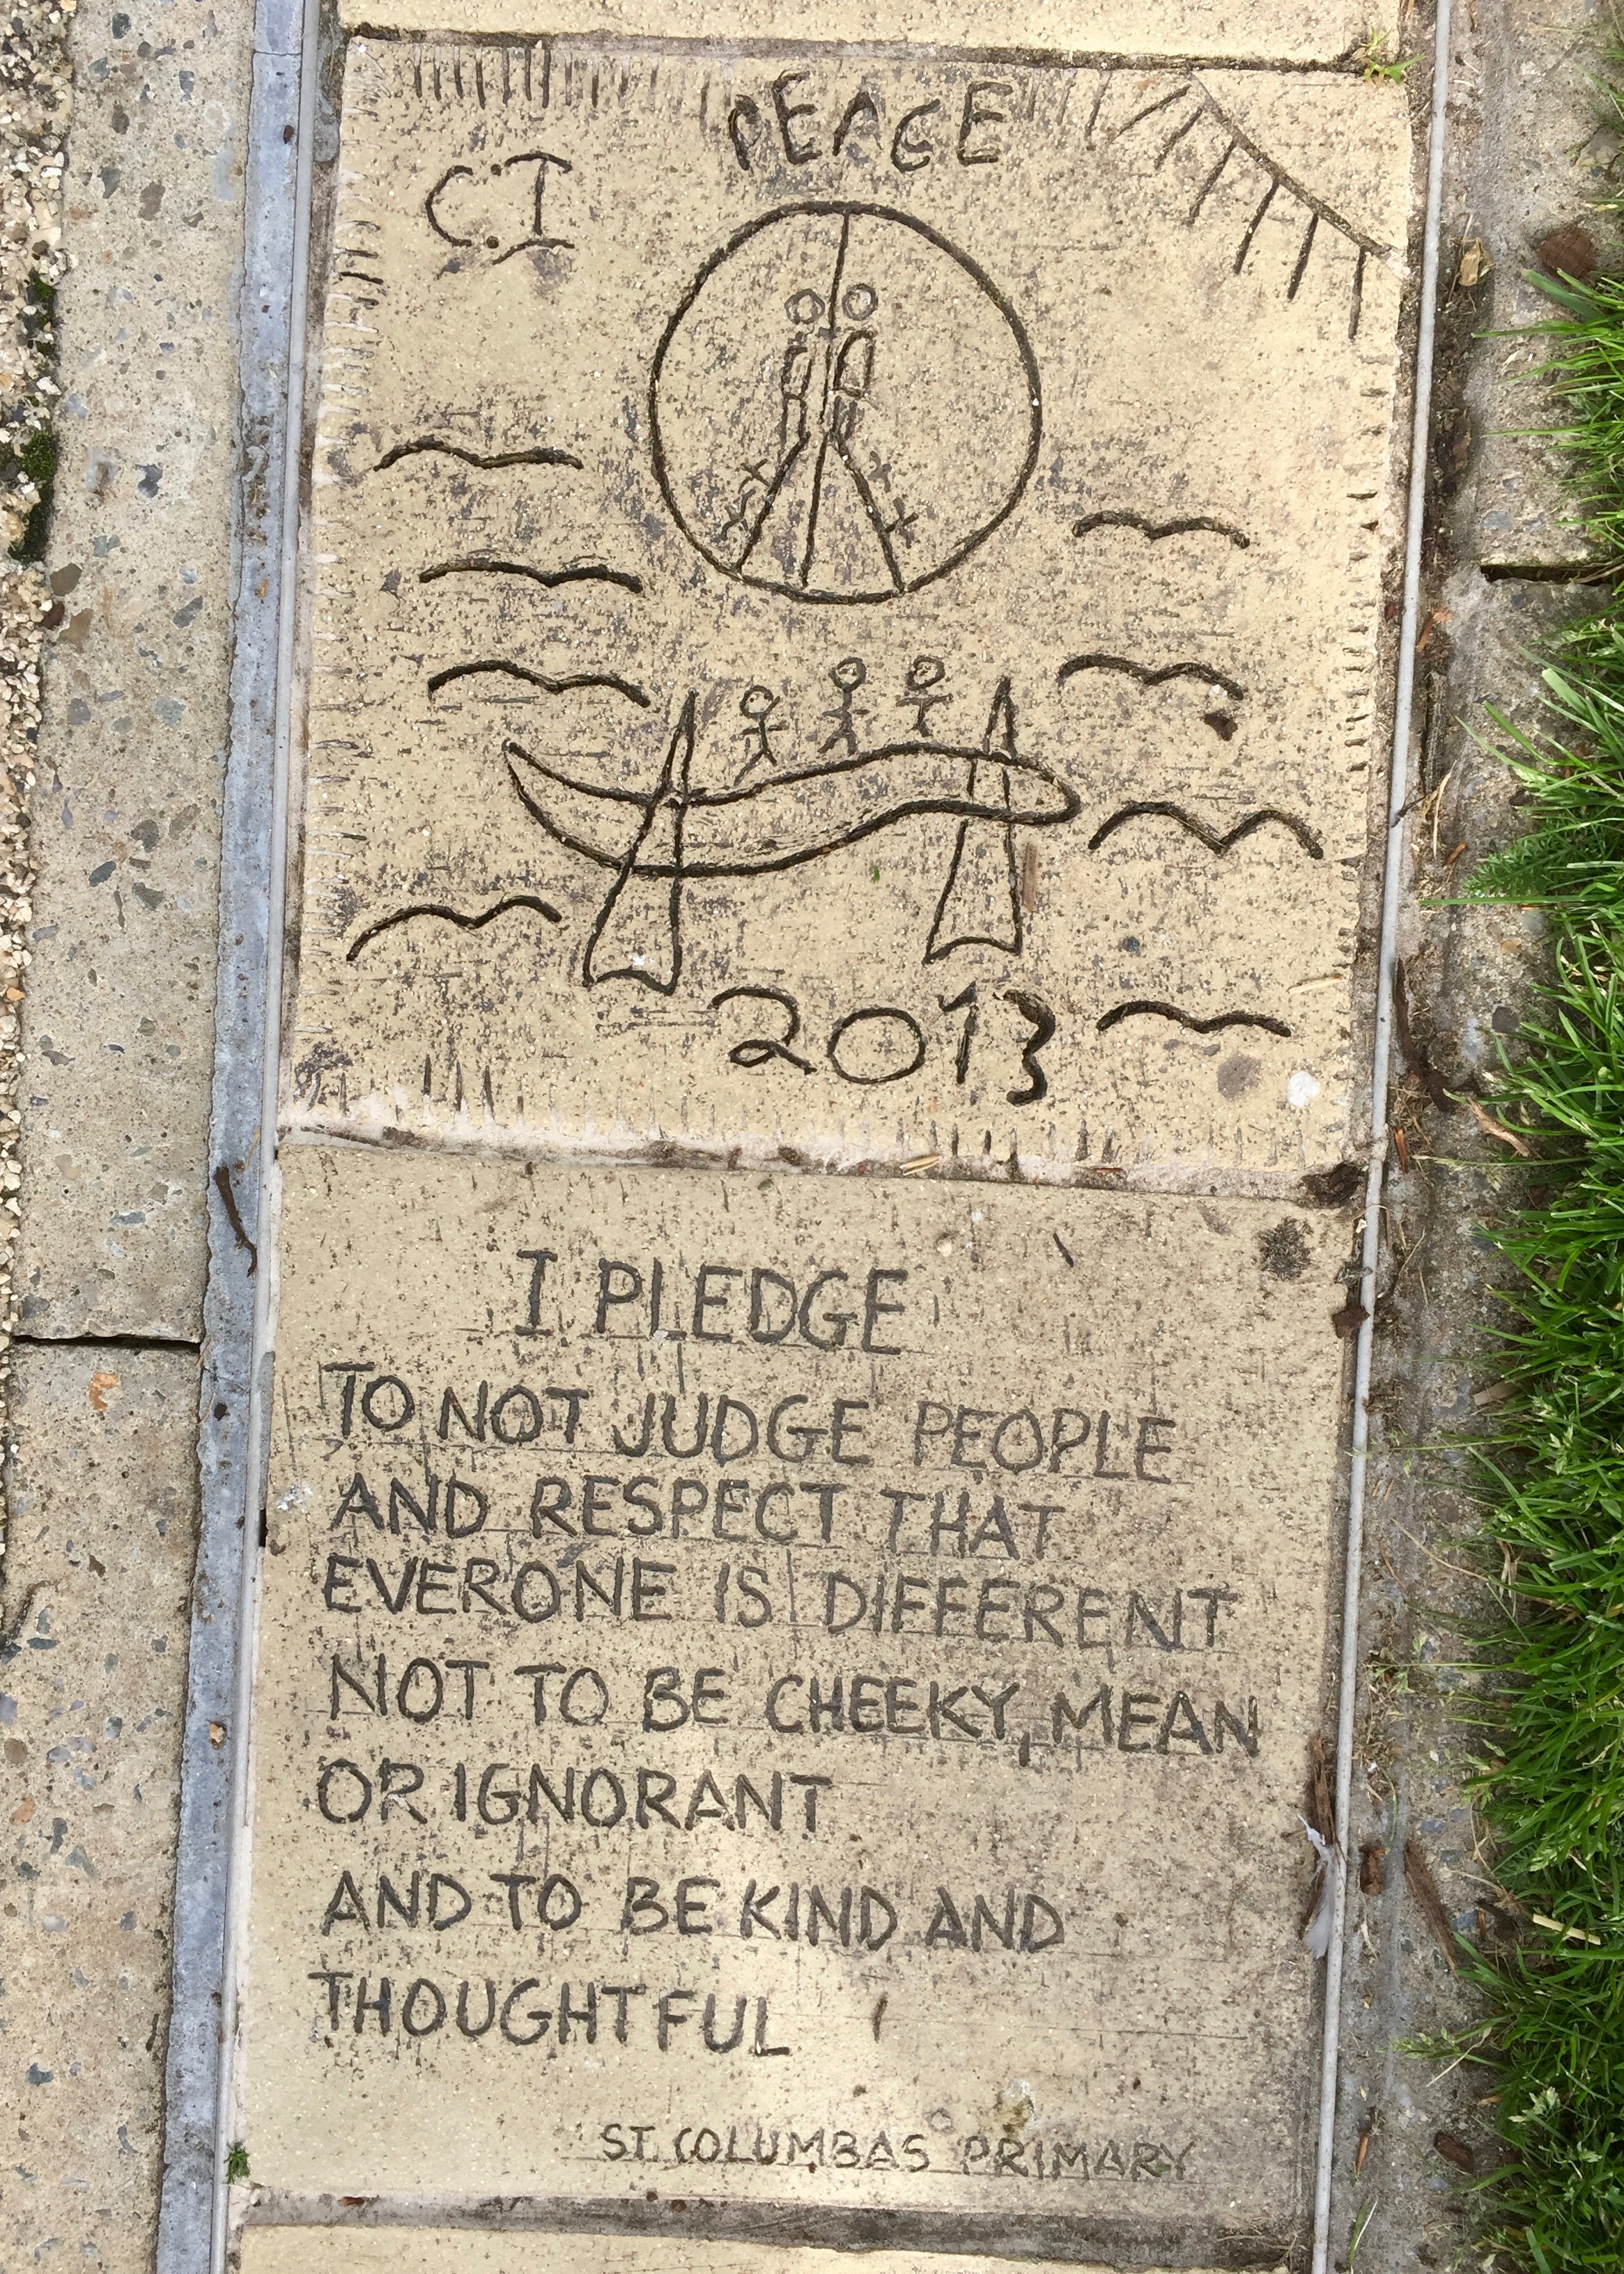 PEACE
C.I
2013
I PLEDGE
TO NOT JUDGE PEOPLE
AND RESPECT THAT
EVERONE IS DIFFERENT
NOT TO BE CHEEKY, MEAN
OR IGNORANT
AND TO BE KIND AND
THOUGHTFUL
ST. COLUMBAS PRIMARY